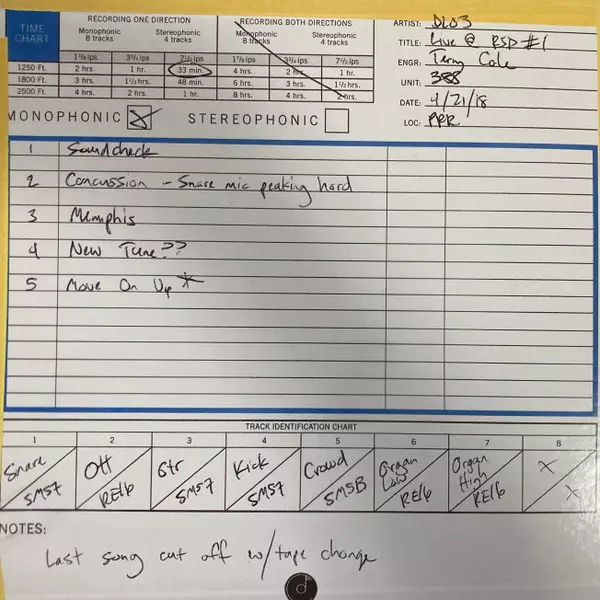 TIME CHART
RECORDING ONE DIRECTION
Monophonic 8 tracks
Stereophonic 4 tracks
1⅞ ips 3¾ ips 7½ ips
1250 Ft. 2 hrs. 1 hr. 33 min.
1800 Ft. 3 hrs. 1½ hrs. 48 min.
2500 Ft. 4 hrs. 2 hrs. 1 hr.
RECORDING BOTH DIRECTIONS
Monophonic 8 tracks
Stereophonic 4 tracks
1⅞ ips 3¾ ips 7½ ips
4 hrs. 2 hrs. 1 hr.
6 hrs. 3 hrs. 1½ hrs.
8 hrs. 4 hrs. 2 hrs.
ARTIST: DLO3
TITLE: Live @ RSD #1
ENGR: Terry Cole
UNIT: 388
DATE: 4/21/18
LOC:
MONOPHONIC
STEREOPHONIC
1 Soundcheck
2 Concussion - Snare mic peaking hard
3 Memphis
4 New Tune??
5 Move On Up *
TRACK IDENTIFICATION CHART
1 2 3 4 5 6 7 8
Snare SM57
OH RE16
Gtr SM57
Kick SM57
Crowd SM58
Organ Low RE16
Organ High RE16
X X
NOTES:
Last song cut off w/tape change